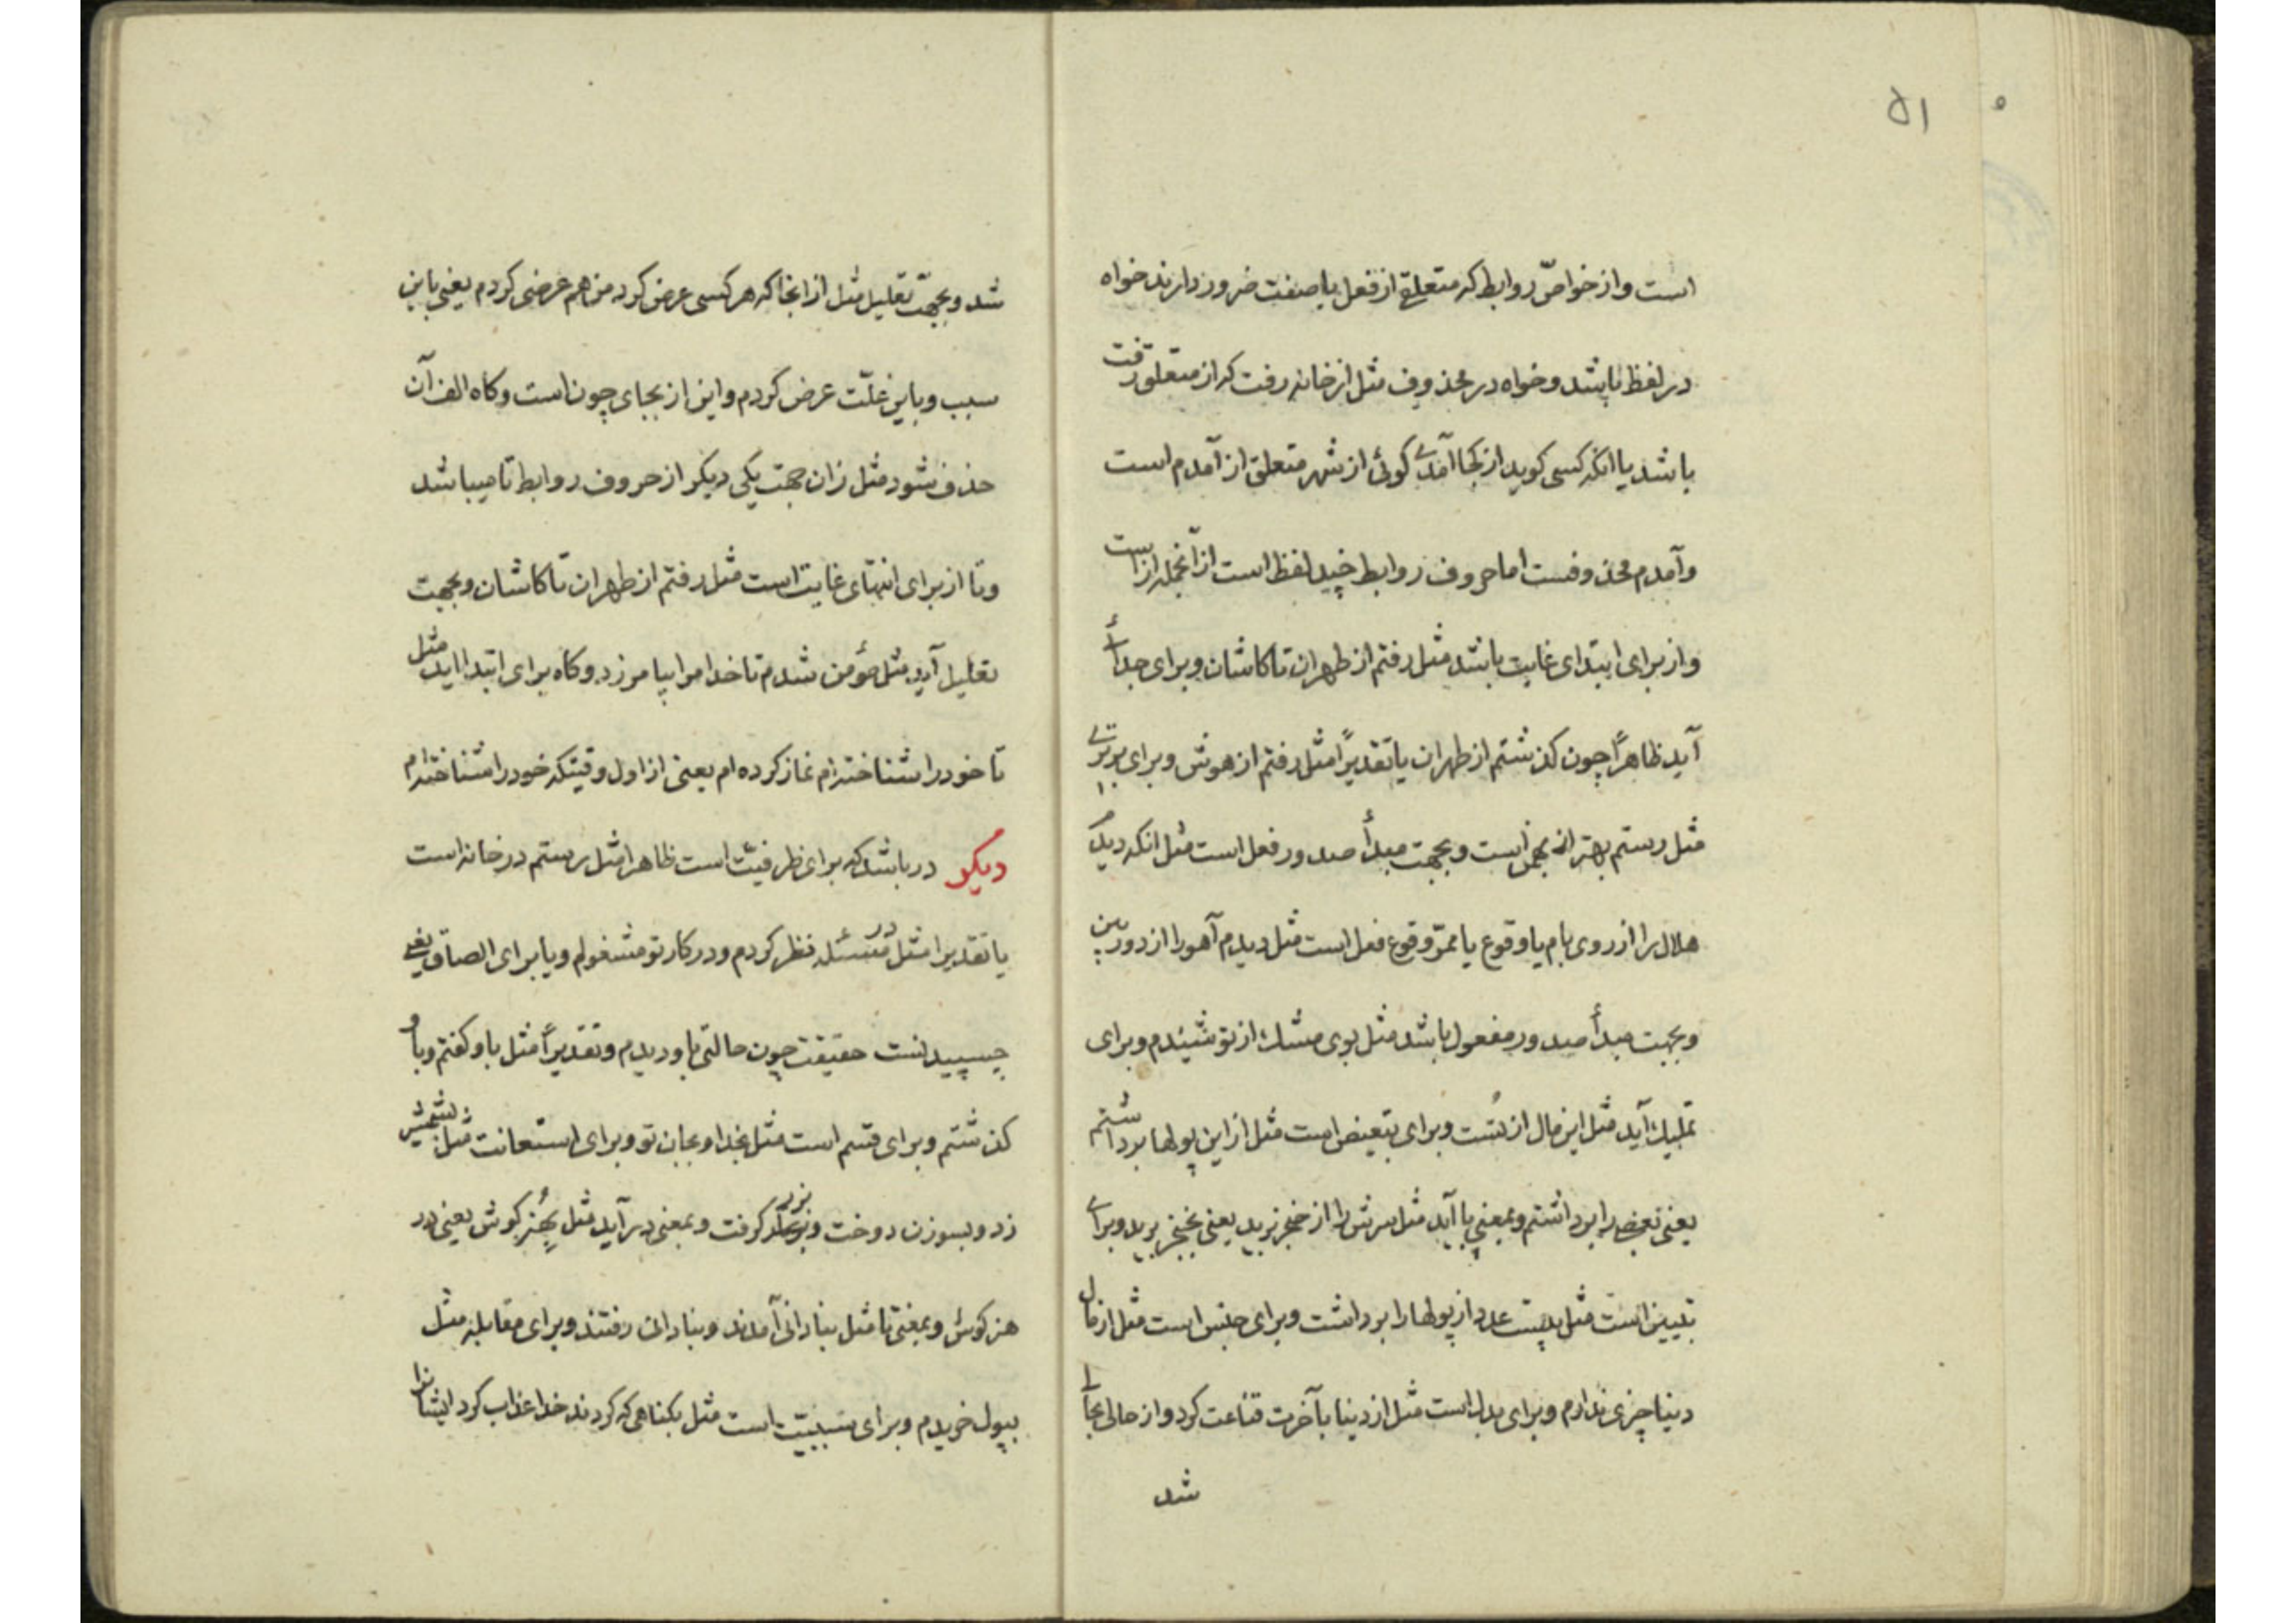 ۵۱
است و از خواصّ روابط که متعلق از فعل یا صفت ضرور دارند خواه
در لفظ باشد و خواه در محذوف مثل از خانه رفت که از متعلق رفت
باشد یا انکه کسی کوید از کجا آمدی کوئی از شهر متعلق از آمدم است
و آمدم محذوفست اما حروف روابط چند لفظ است از آنجمله از است
و از برای ابتدای غایت باشد مثل رفتم از طهران تا کاشان و برای جدائی
آید ظاهراً چون کذشتم از طهران یا تقدیراً مثل رفتم از هوش و برای برتری
مثل رستم بهتر از بهمن است و بجهت مبدأ صدور فعل است مثل انکه دیدم
هلال را از روی بام یا وقوع یا ممرّ وقوع فعل است مثل دیدم آهو را از دوربین
و بجهت مبدأ صدور مفعول باشد مثل بوی مشک از تو شنیدم و برای
تملیک آید مثل این مال از تست و برای تبعیض است مثل از این پولها برداشتم
یعنی بعض را برداشتم و بمعنی با آید مثل سرش را از خنجر برید یعنی بخنجر برید و برای
تبیین است مثل بیست عدد از پولها را برداشت و برای جنس است مثل از مال
دنیا چیزی ندارم و برای بدل است مثل از دنیا بآخرت قناعت کرد و از حالی بحالی
شد
شد و بجهت تعلیل مثل از انجا که هر کسی عرض کرد من هم عرضی کردم یعنی باین
سبب و باین علّت عرض کردم و این از بجای چون است و کاه الف آن
حذف شود مثل زان جهت یکی دیکر از حروف روابط تا میباشد
و تا از برای انتهای غایت است مثل رفتم از طهران تا کاشان و بجهت
تعلیل آید مثل مؤمن شدم تا خدا مرا بیامرزد و کاه برای ابتدا اید مثل
تا خود را شناخته‌ام نماز کرده‌ام یعنی از اول وقتیکه خود را شناخته‌ام
دیکر در باشد که برای ظرفیت است ظاهرا مثل رستم در خانه است
یا تقدیرا مثل در مسئله نظر کردم و در کار تو مشغولم و با برای الصاق یعنی
چسپیدنست حقیقت چون حالتی باو دیدم و تقدیراً مثل باو کفتم و باو
کذشتم و برای قسم است مثل بخدا و بجان تو و برای استعانت مثل بشمشیر
زد و بسوزن دوخت و بزور کرفت و بمعنی در آید مثل بهنر کوش یعنی در
هنر کوش و بمعنی تا مثل بنادانی آمدند و بنادانی رفتند و برای مقابله مثل
بپول خریدم و برای سببیّت است مثل بکناهی که کردند خدا عذاب کرد ایشانرا